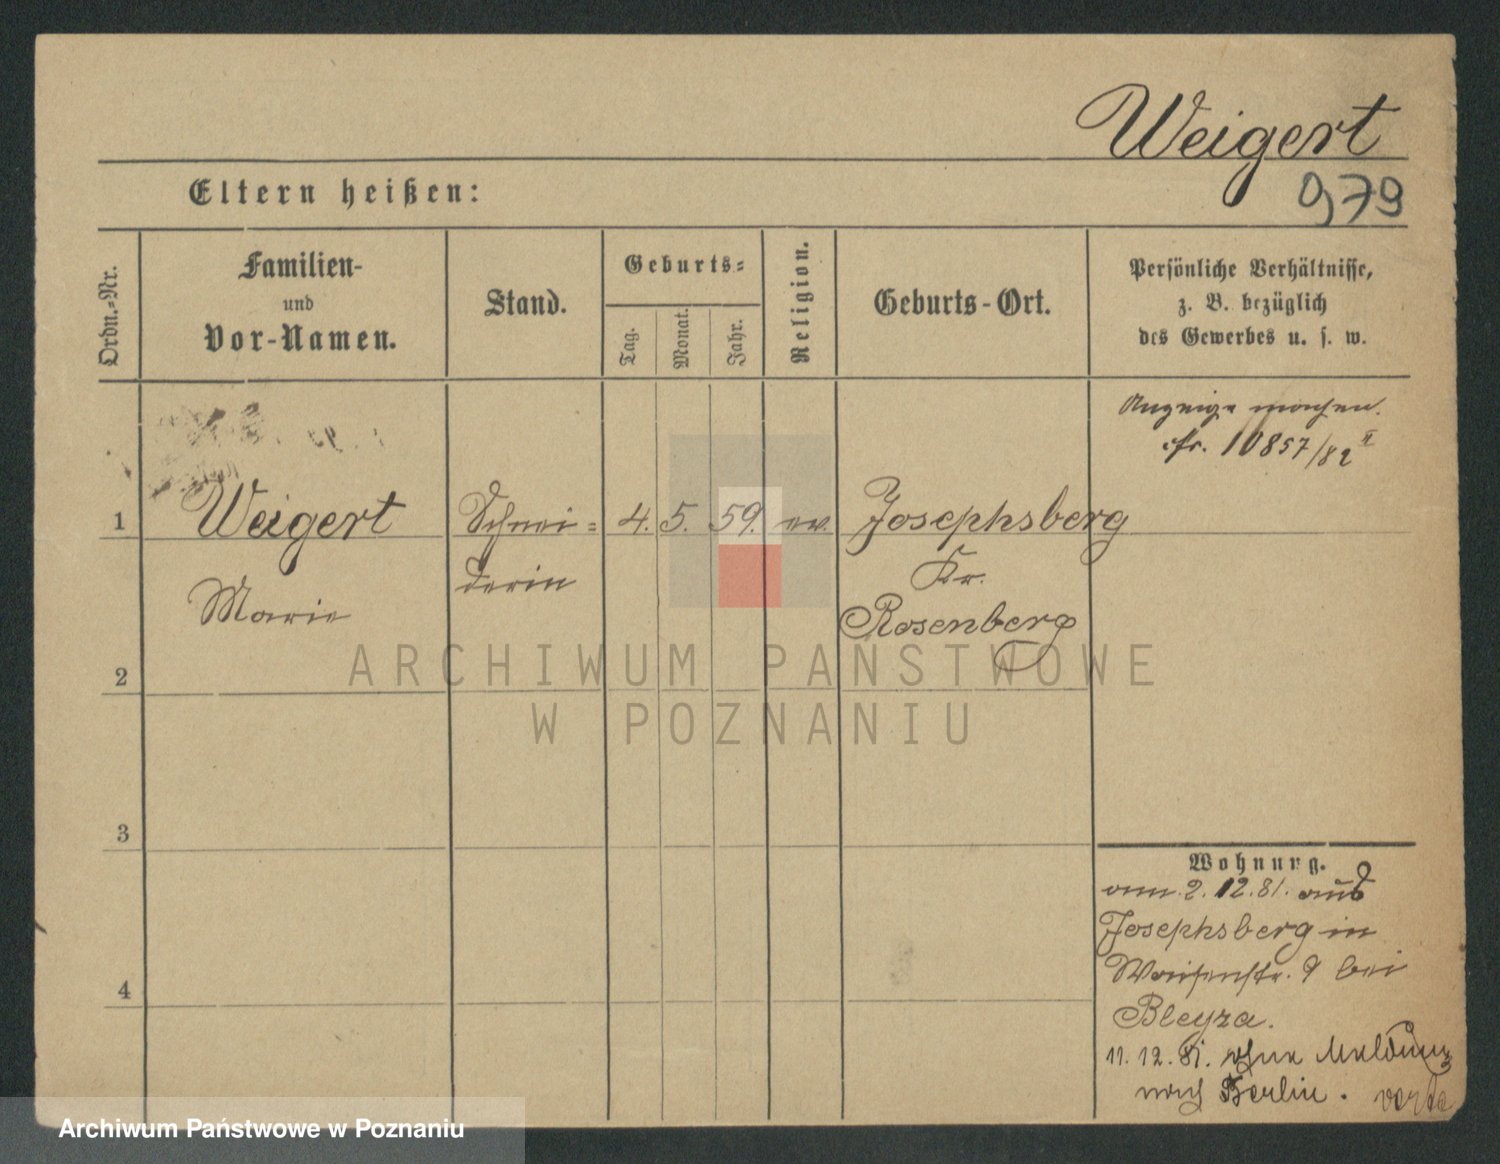 Weigert
979
Eltern heißen:
Ordn.-Nr.
Familien-
und
Vor-Namen.
Stand.
Geburts-
Tag.
Monat.
Jahr.
Religion.
Geburts-Ort.
Persönliche Verhältnisse,
z. B. bezüglich
des Gewerbes u. s. w.
Anzeige machen.
cfr. 10857/82 II
1
Weigert
Marie
Schnei=
derin
4. 5. 59. ev.
Josephsberg
Kr.
Rosenberg
2
3
4
Wohnung.
vom 2. 12. 81. aus
Josephsberg in
Waisenstr. 9 bei
Bleyza.
11. 12. 81. ohne Meldung
nach Berlin. verte
ARCHIWUM PAŃSTWOWE
W POZNANIU
Archiwum Państwowe w Poznaniu